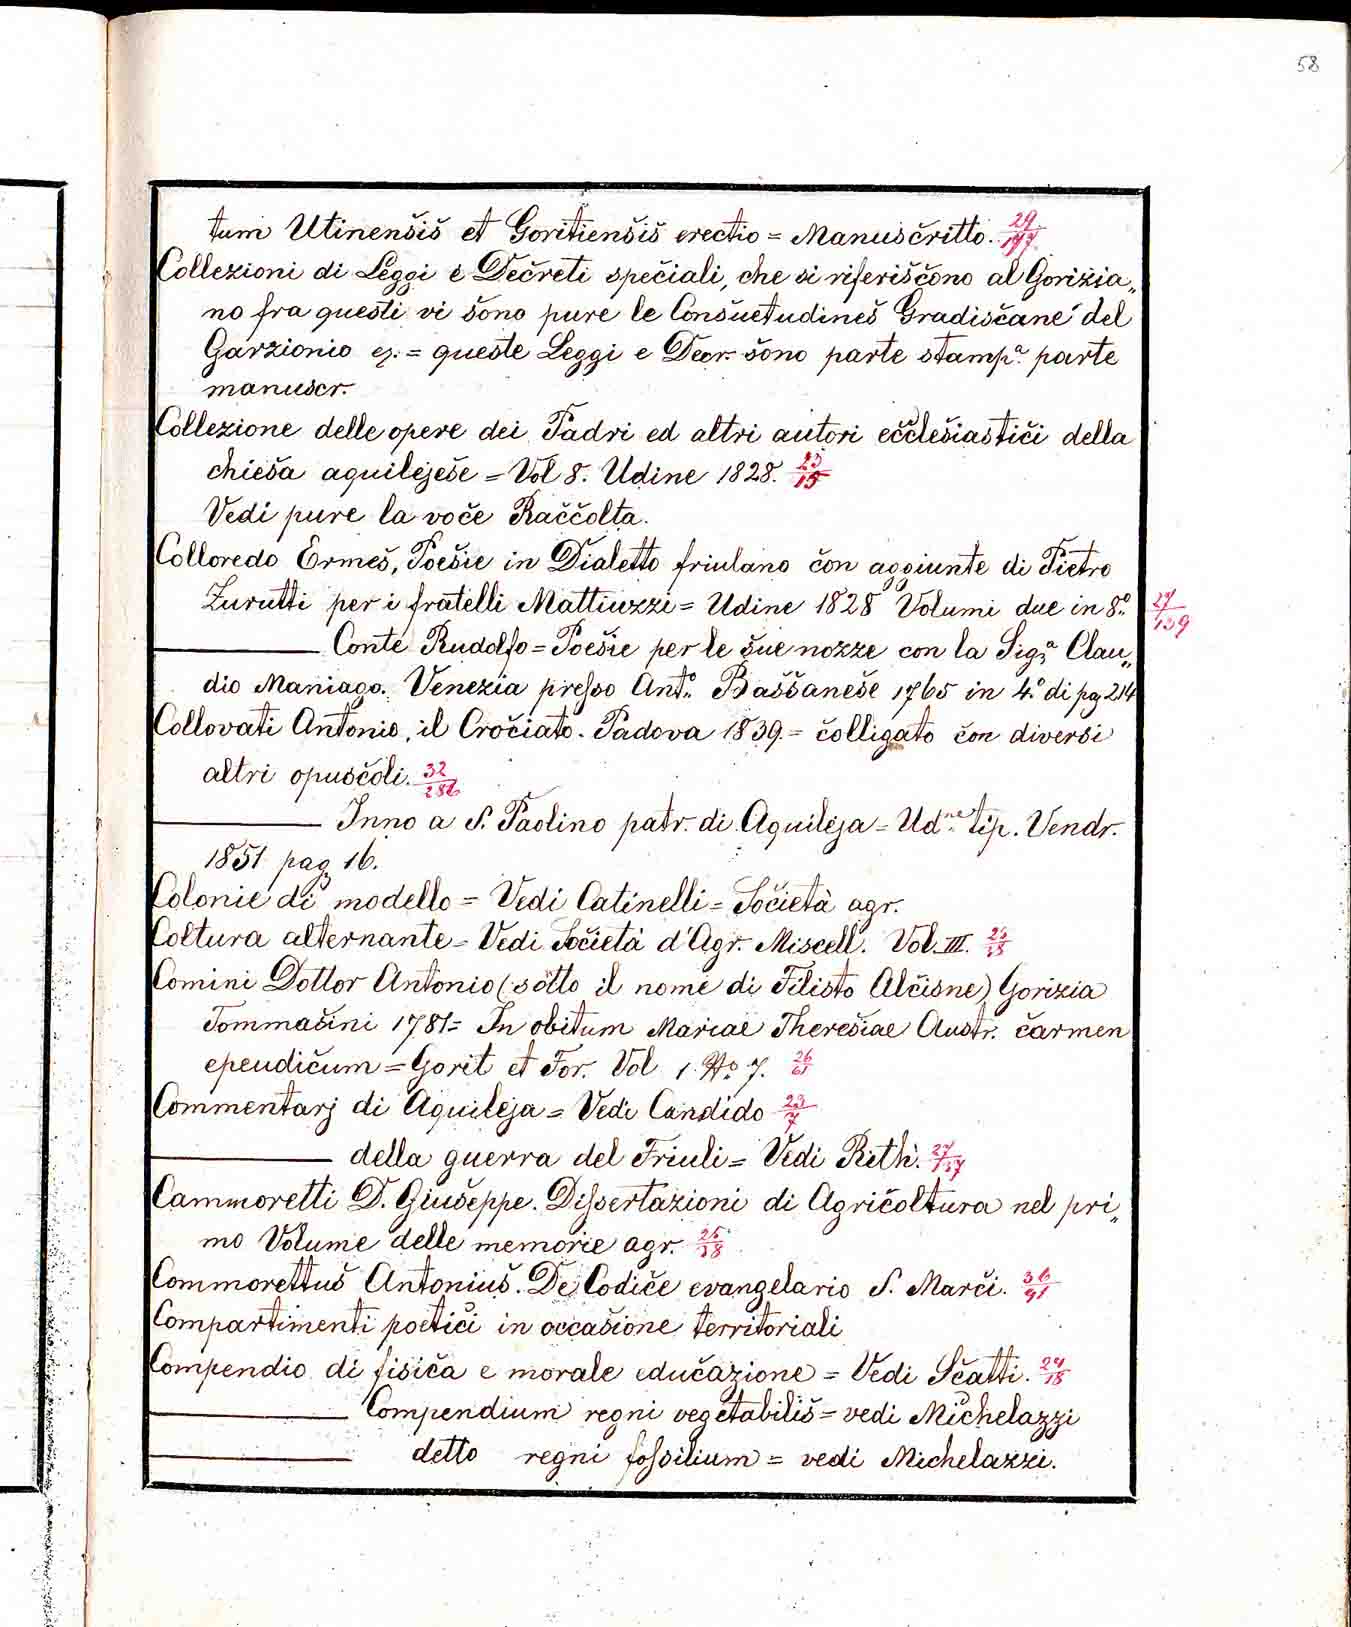 58
tum Utinensis et Goritiensis erectio = Manuscritto. 29/177
Collezioni di Leggi e Decreti speciali, che si riferiscono al Gorizia„
no fra questi vi sono pure le Consuetudines Gradiscane del
Garzionio = queste Leggi e Decr. sono parte stamp.ª parte
manuscr.
Collezione delle opere dei Padri ed altri autori ecclesiastici della
chiesa aquilejese = Vol 8. Udine 1828. 23/15
Vedi pure la voce Raccolta.
Colloredo Ermes, Poesie in Dialetto friulano con aggiunte di Pietro
Zurutti per i fratelli Mattiuzzi = Udine 1828 Volumi due in 8.º 27/139
——— Conte Rudolfo = Poesie per le sue nozze con la Sig.ª Clau„
dio Maniago. Venezia presso Ant.º Bassanese 1765 in 4.º di pag 214
Collovati Antonio, il Crociato. Padova 1839. = colligato con diversi
altri opuscoli. 32/286
——— Inno a S. Paolino patr. di Aquileja = Ud.ne tip. Vendr.
1851 pag 16.
Colonie di modello = Vedi Catinelli = Società agr.
Coltura alternante = Vedi Società d'Agr. Miscell. Vol. III. 25/38
Comini Dottor Antonio (sotto il nome di Filisto Alcisne) Gorizia
Tommasini 1781 = In obitum Mariae Theresiae Austr. carmen
epeudicum = Gorit et For. Vol 1. No 7. 26/61
Commentarj di Aquileja = Vedi Candido 23/7
——— della guerra del Friuli = Vedi Rith. 27/137
Cammoretti D. Giuseppe. Dissertazioni di Agricoltura nel pri„
mo Volume delle memorie agr. 25/38
Commorettus Antonius. De Codice evangelario S. Marci. 36/91
Compartimenti poetici in occasione territoriali
Compendio di fisica e morale educazione = Vedi Scatti. 24/18
——— Compendium regni vegetabilis = vedi Michelazzi
——— detto regni fossilium = vedi Michelazzi.